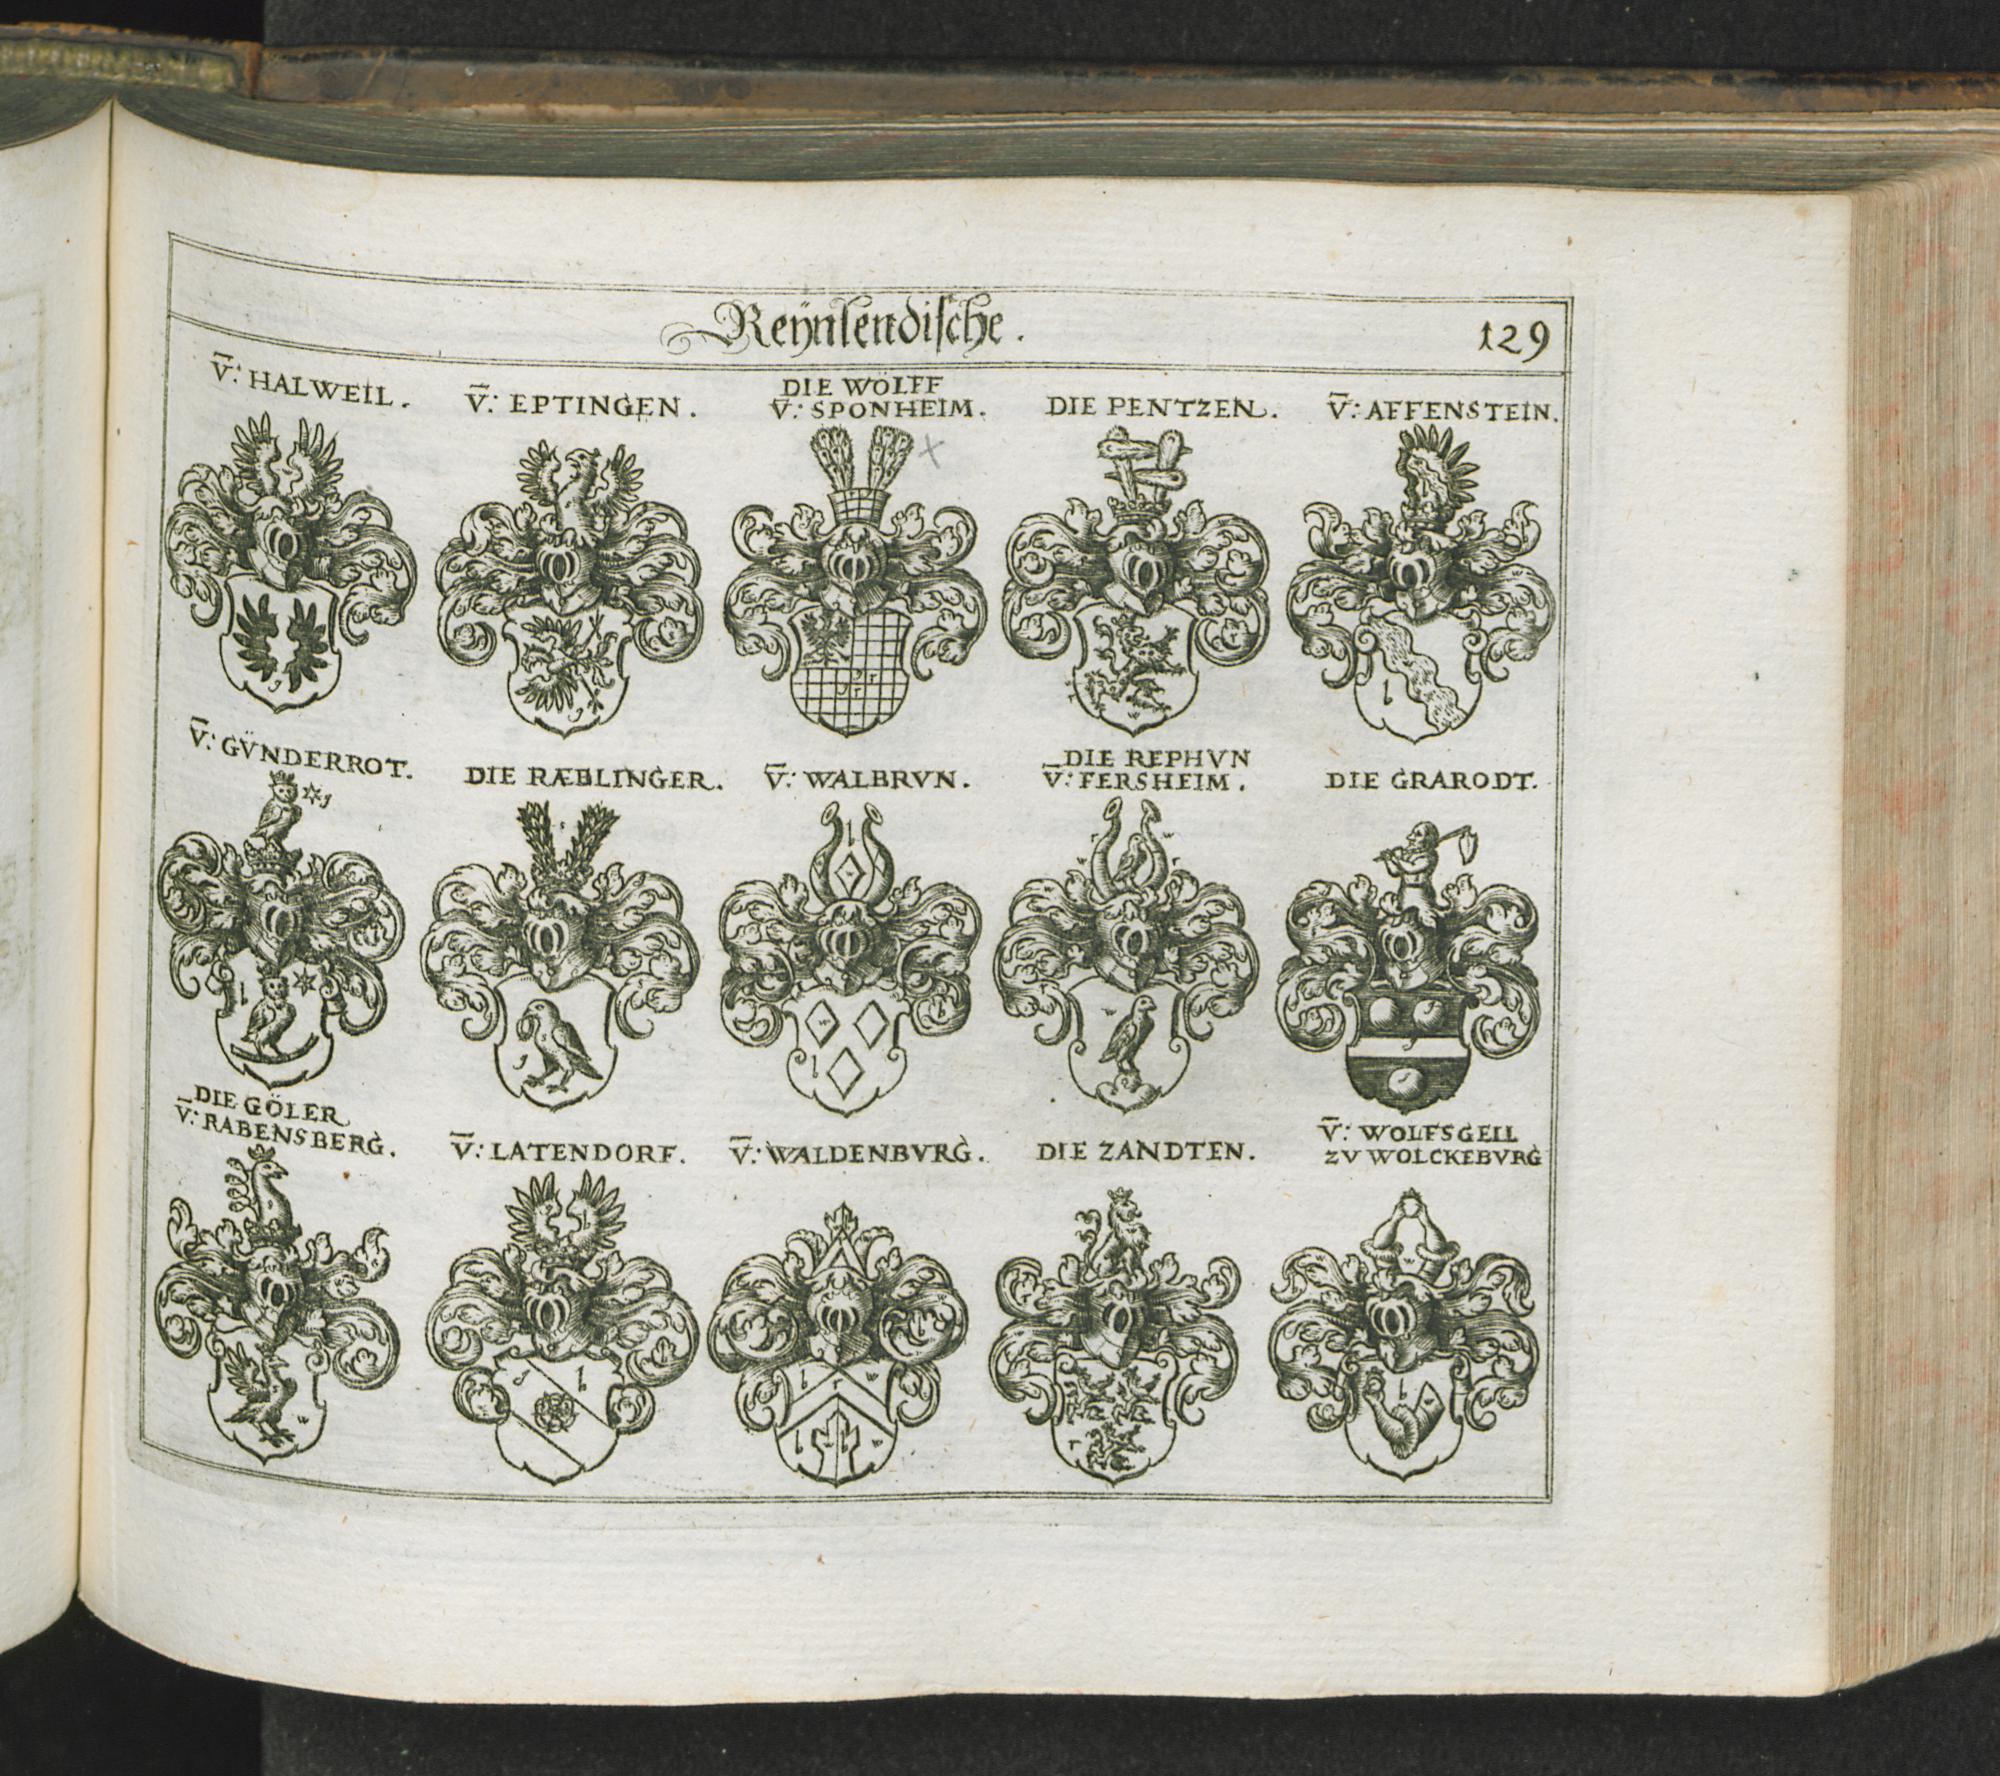 Reÿnlendische.
129
V̄: HALWEIL.
V̄: EPTINGEN.
DIE WÖLFF
V̄: SPONHEIM.
DIE PENTZEN.
V̄: AFFENSTEIN.
V̄: GÜNDERROT.
DIE RÆBLINGER.
V̄: WALBRVN.
DIE REPHVN
V̄: FERSHEIM.
DIE GRARODT.
DIE GÖLER
V̄: RABENSBERG.
V̄: LATENDORF.
V̄: WALDENBVRG.
DIE ZANDTEN.
V̄: WOLFSGEIL
ZV WOLCKEBVRG